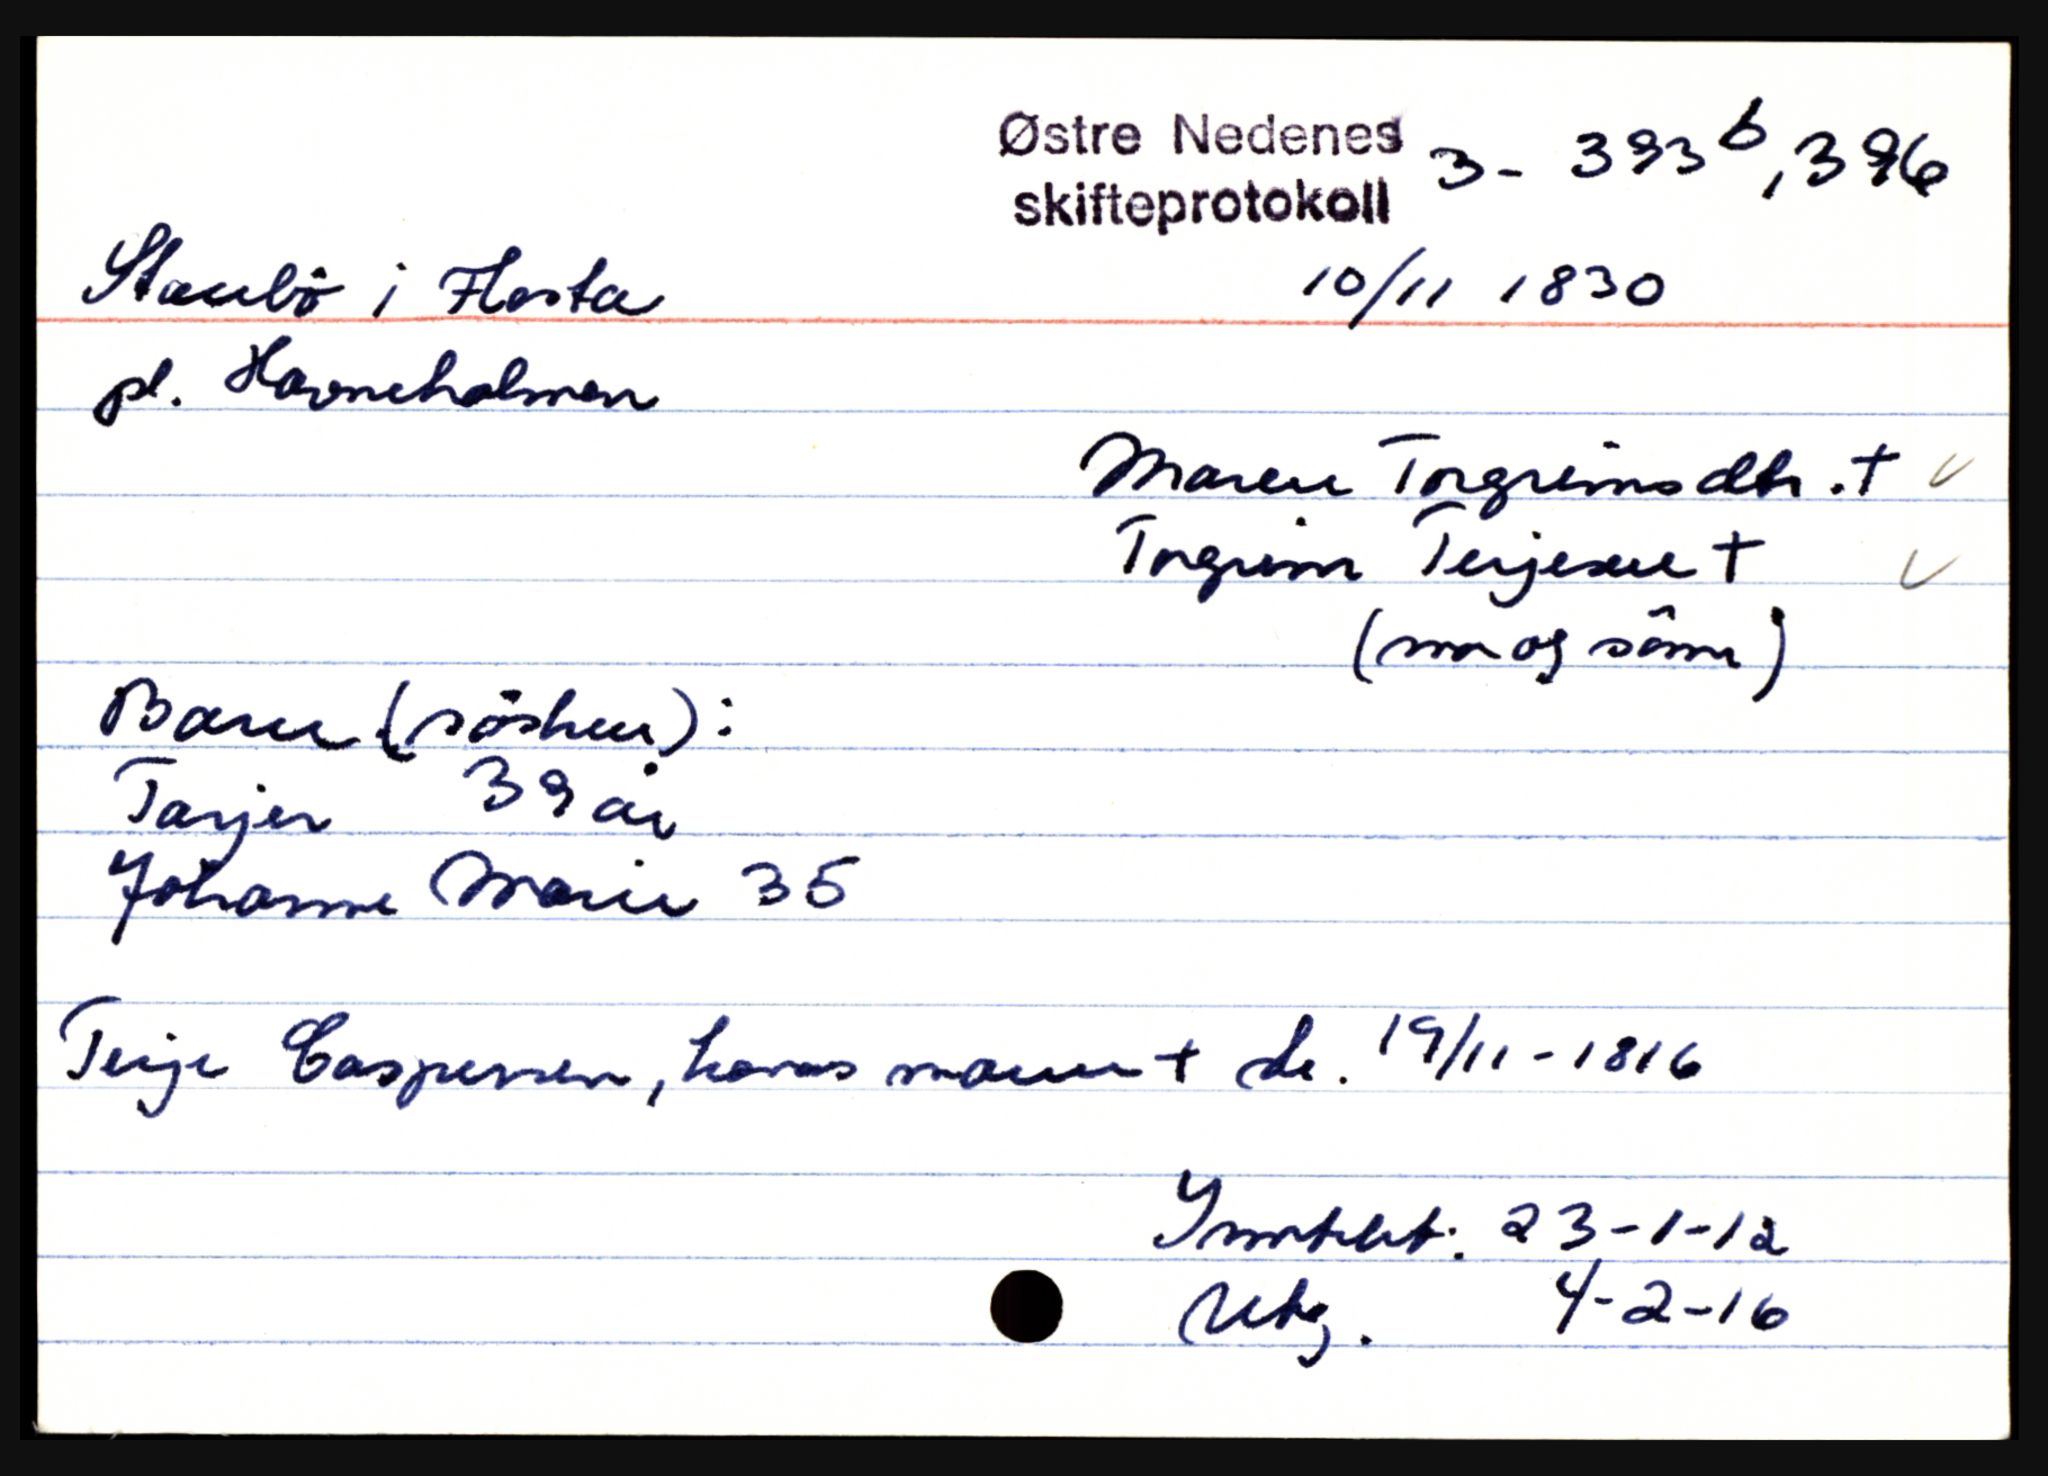 Østre Nedenes 3 - 393 b, 396
skifteprotokoll
Staubö i Flosta 10/11 1830
pl. Havneholmen
Maren Torgrimsdtr. +
Torgrim Terjesen +
(mor og sönn)
Barn (søsken):
Tarjer 39 år
Johanne Marie 35
Terje Caspersen, hores mann + sk. 19/11 - 1816
Inntekt: 23-1-12
Utg. 4-2-16